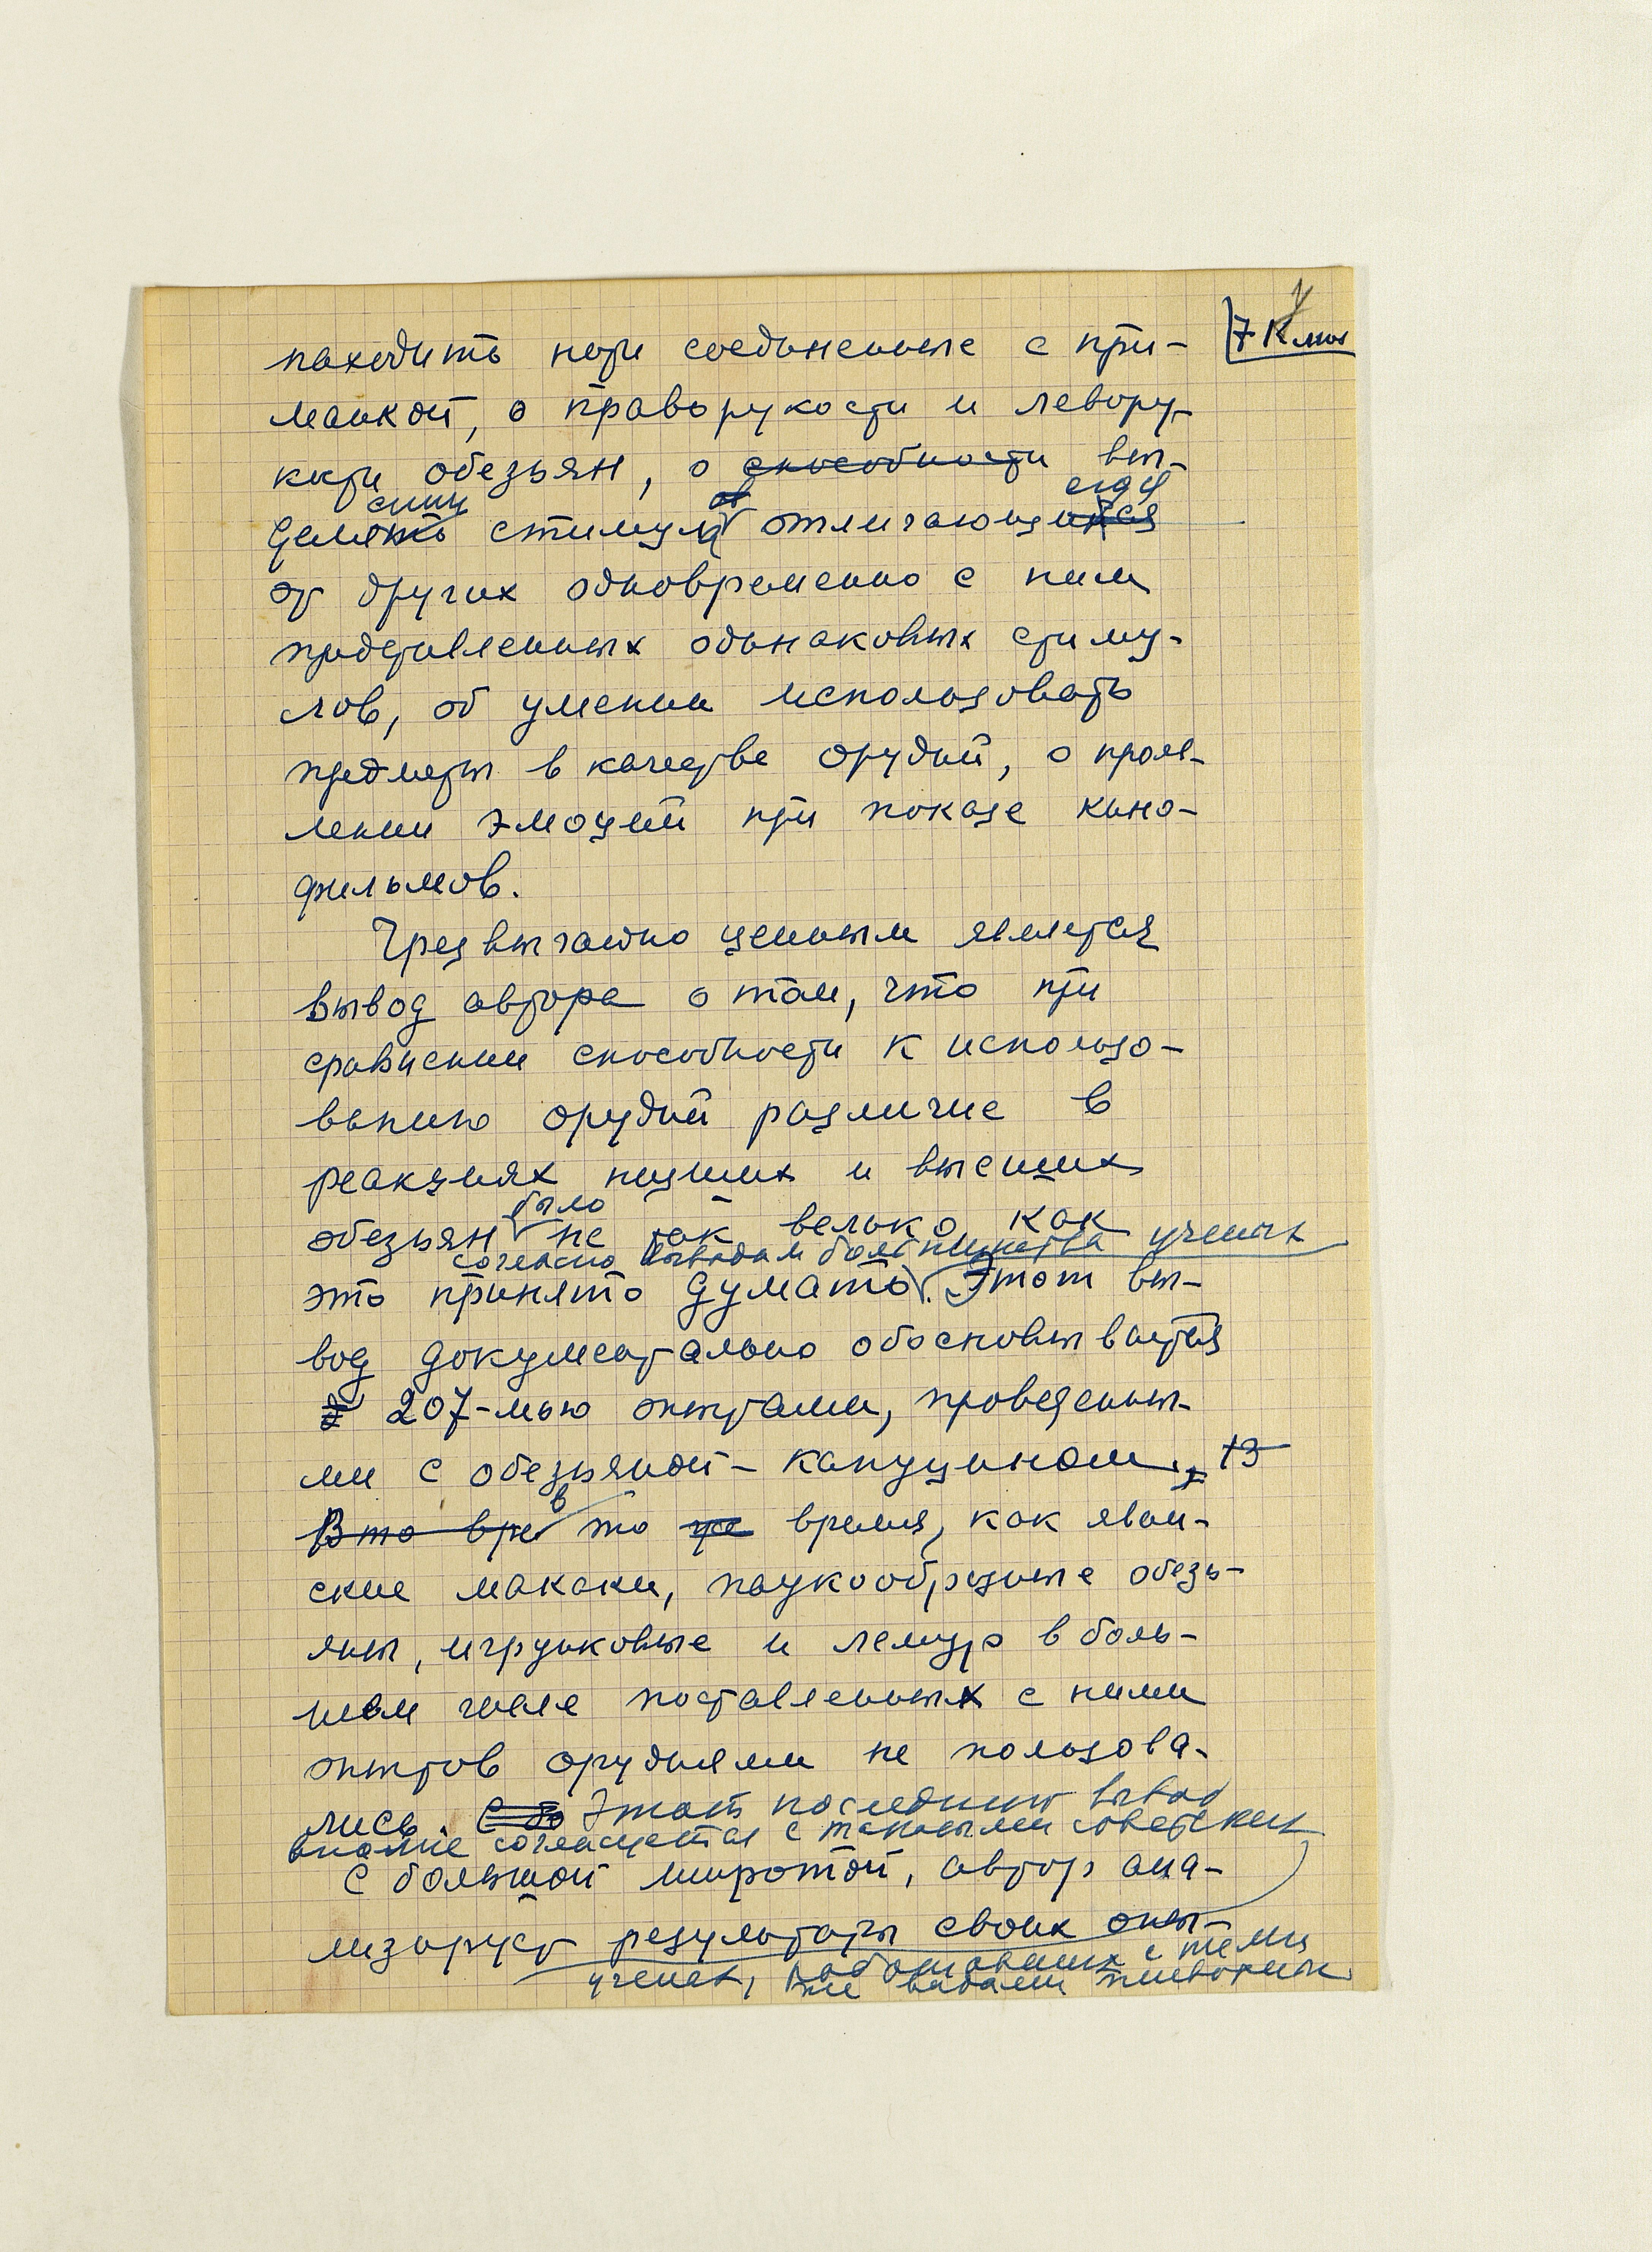 7 Клю
находить нити соединенные с при-
манкой, о праворукости и левору-
кости обезьян, о способности вы-
делять стимул отличающийся
от других одновременно с ним
представленных одинаковых стиму-
лов, об умении использовать
предметы в качестве орудий, о прояв-
лении эмоций при показе кино-
фильмов.
Чрезвычайно ценным является
вывод автора о том, что при
сравнении способности к использо-
ванию орудий различие в
реакциях низших и высших
было
обезьян не так велико, как
согласно выводам большинства ученых
это принято думать. Этот вы-
вод документально обосновывается
207-мью опытами, проведенны-
ми с обезьяной-капуцином,
В то вре в то же время, как яван-
ские макаки, паукообразные обезь-
яны, игрунковые и лемур в боль-
шом числе поставленных с ними
опытов орудиями не пользова-
лись. Этот последний вывод
вполне согласуется с таковыми советских
С большой широтой, автор ана-
лизирует результаты своих опы-
ученых, работавших с теми
же видами животных